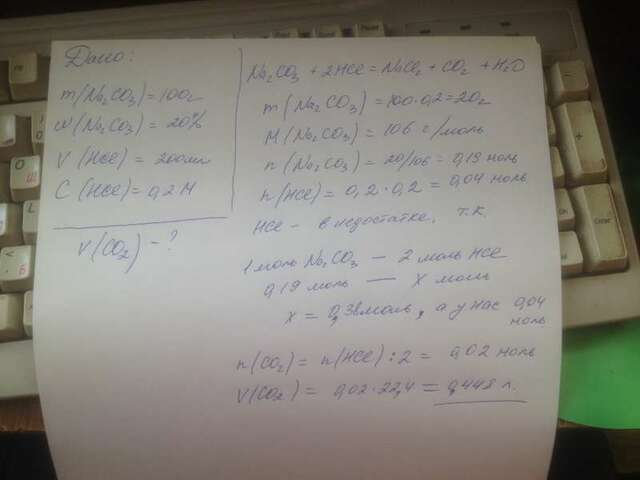 Дано:
m(Na₂CO₃)=100г
ω(Na₂CO₃)=20%
V(HCl)=200мл
C(HCl)=0,2М
V(CO₂)-?
Na₂CO₃+2HCl=NaCl₂+CO₂+H₂O
m(Na₂CO₃)=100·0,2=20г
M(Na₂CO₃)=106 г/моль
n(Na₂CO₃)=20/106=0,19 моль
n(HCl)=0,2·0,2=0,04 моль
HCl - в недостатке, т.к.
1 моль Na₂CO₃ — 2 моль HCl
0,19 моль — х моль
x=0,38 моль, а у нас 0,04
моль
n(CO₂)=n(HCl):2=0,02 моль
V(CO₂)=0,02·22,4=0,448 л.